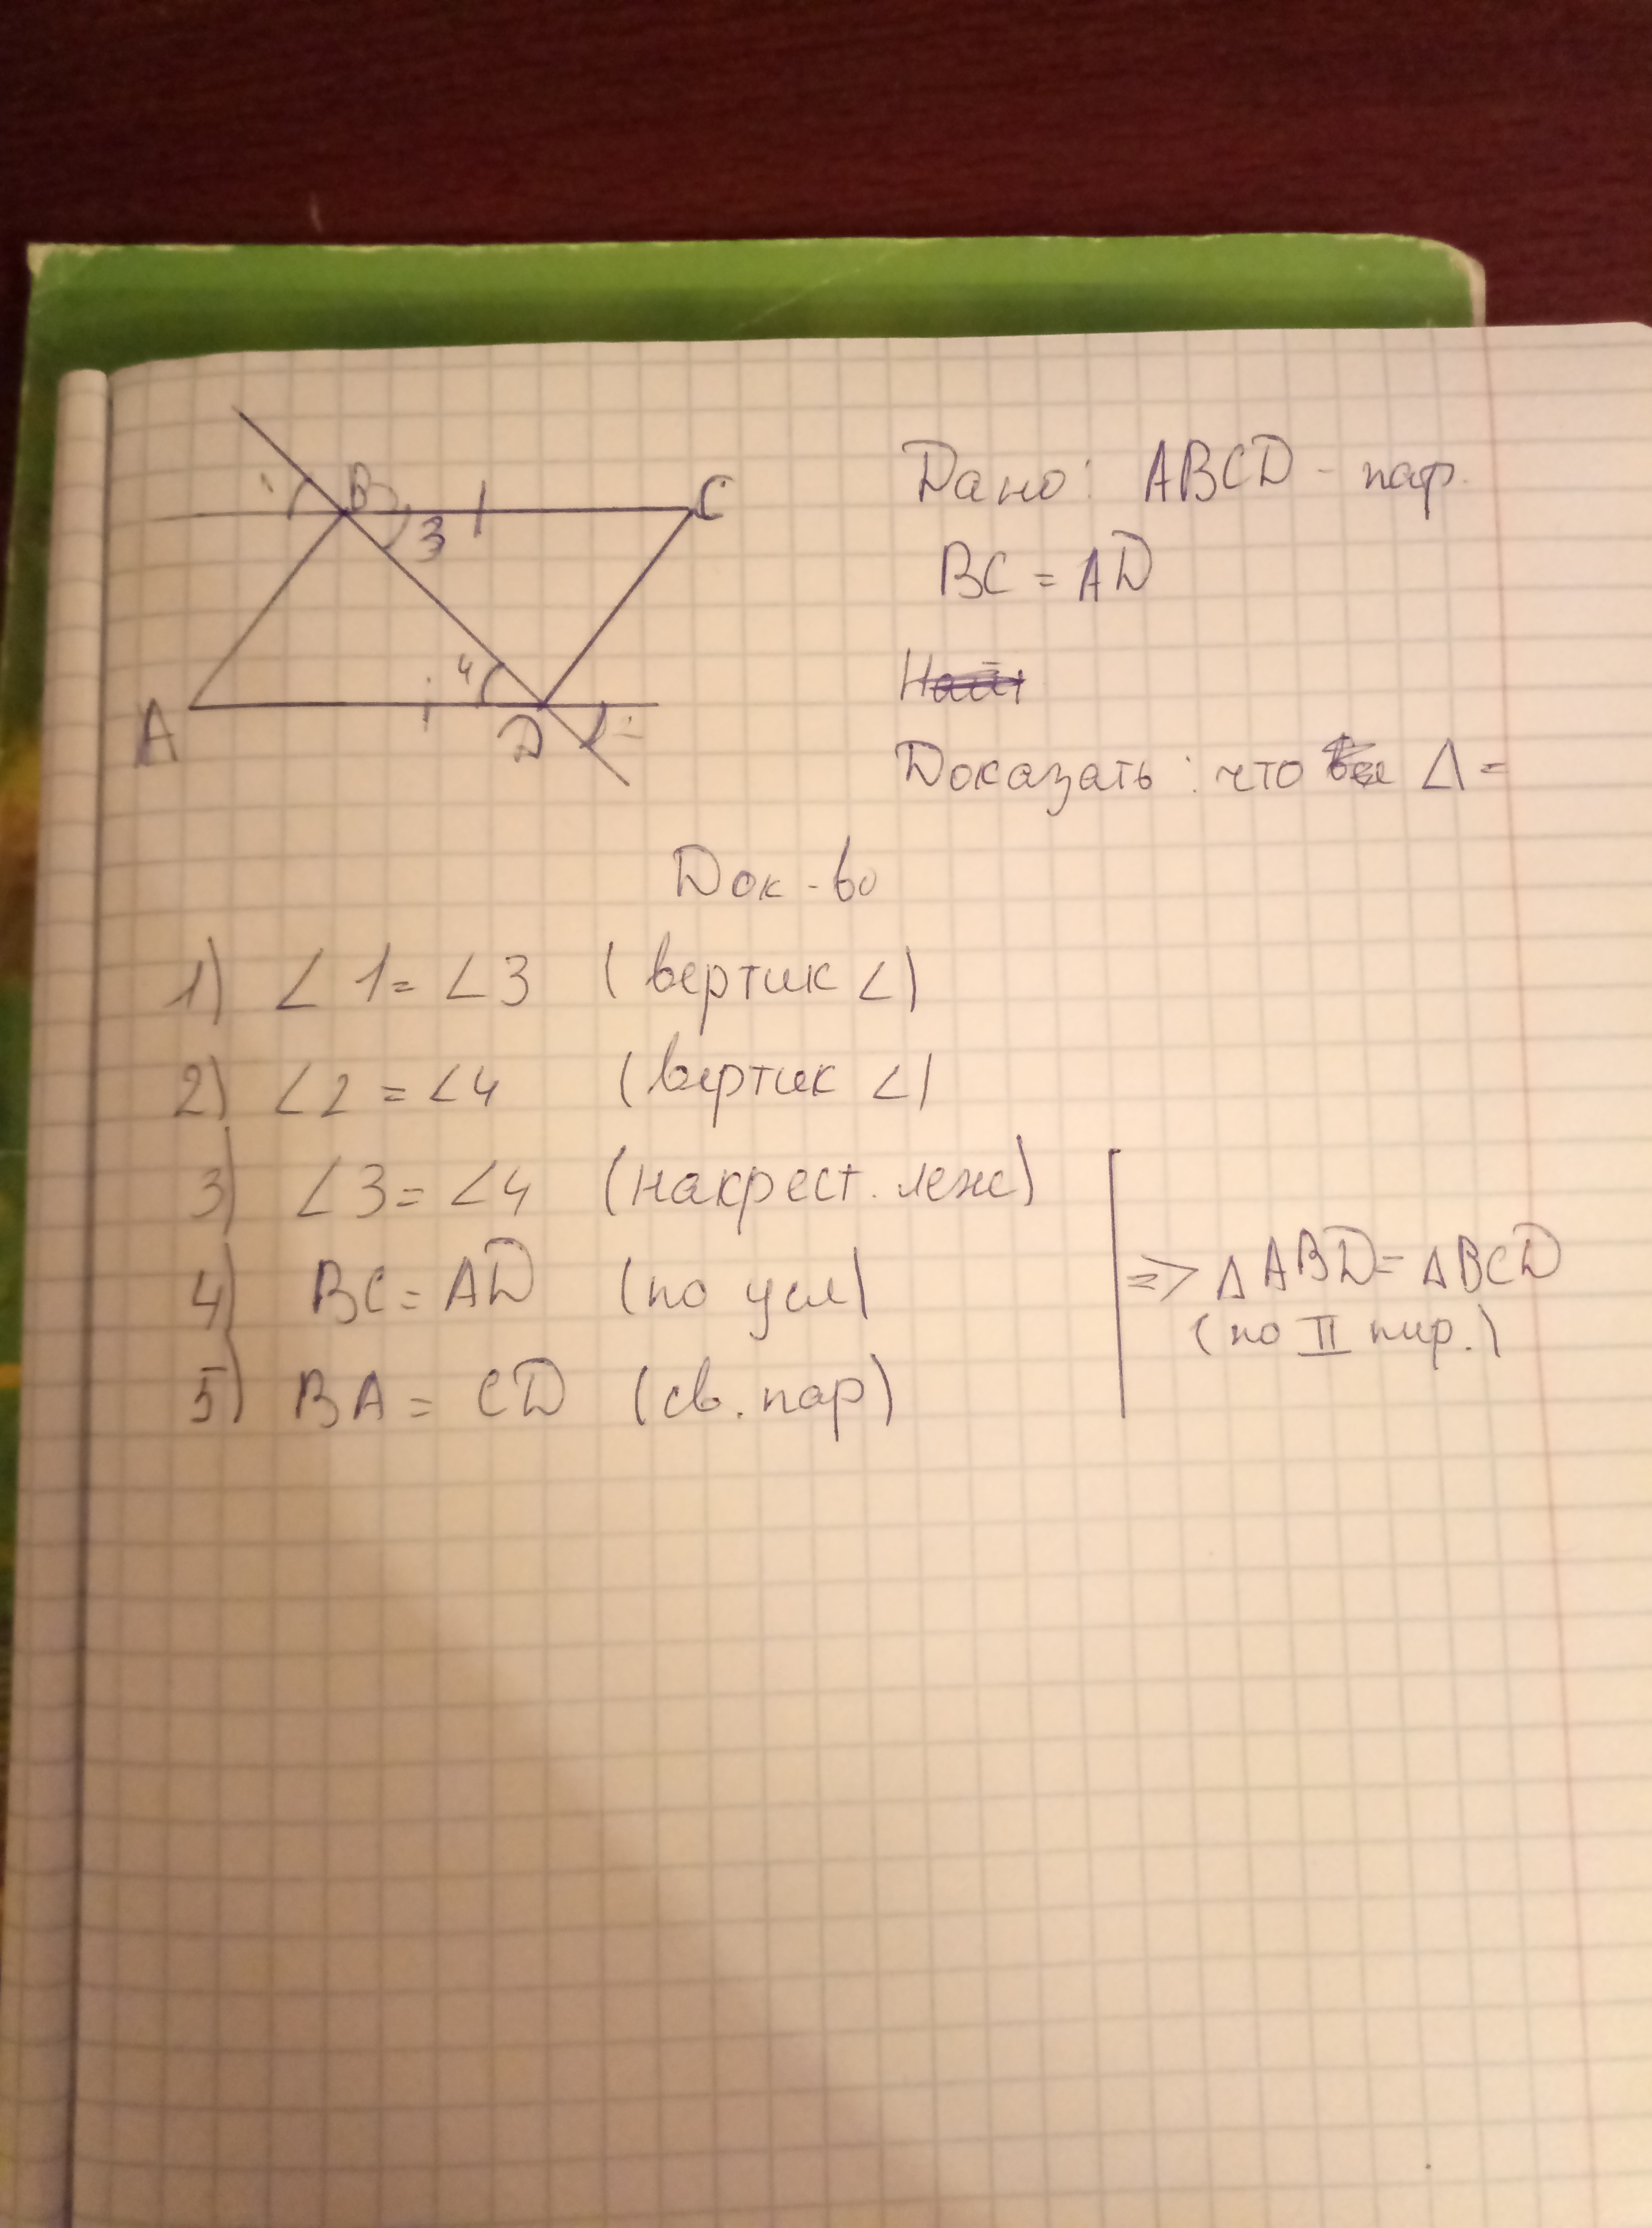 B
C
3
4
A
D
Дано: ABCD - пар.
BC = AD
Доказать: что Δ =
Док-во
1) ∠1 = ∠3 (вертик ∠)
2) ∠2 = ∠4 (вертик ∠)
3) ∠3 = ∠4 (накрест. леж)
4) BC = AD (по усл)
5) BA = CD (св. пар)
=> Δ ABD = Δ BCD
(по II пир.)